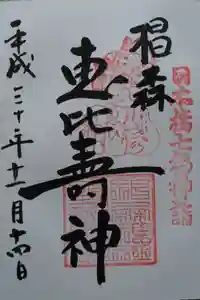 日本橋七福神詣
椙森
恵比寿神
平成三十年十一月十四日